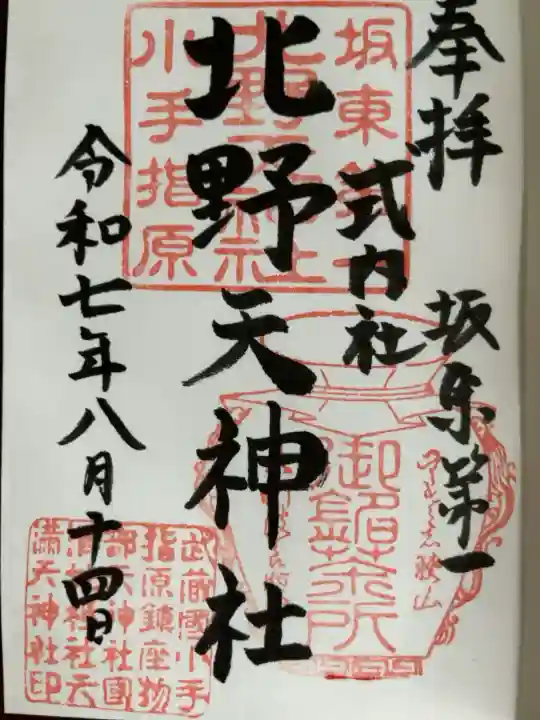 奉拝
坂東第一
式内社
北野天神社
令和七年八月十四日
坂東第一
北野天神社
小手指原
御詔茶所
武蔵國小手
指原鎮座物
部天神社國
渭地祇社天
満天神社印